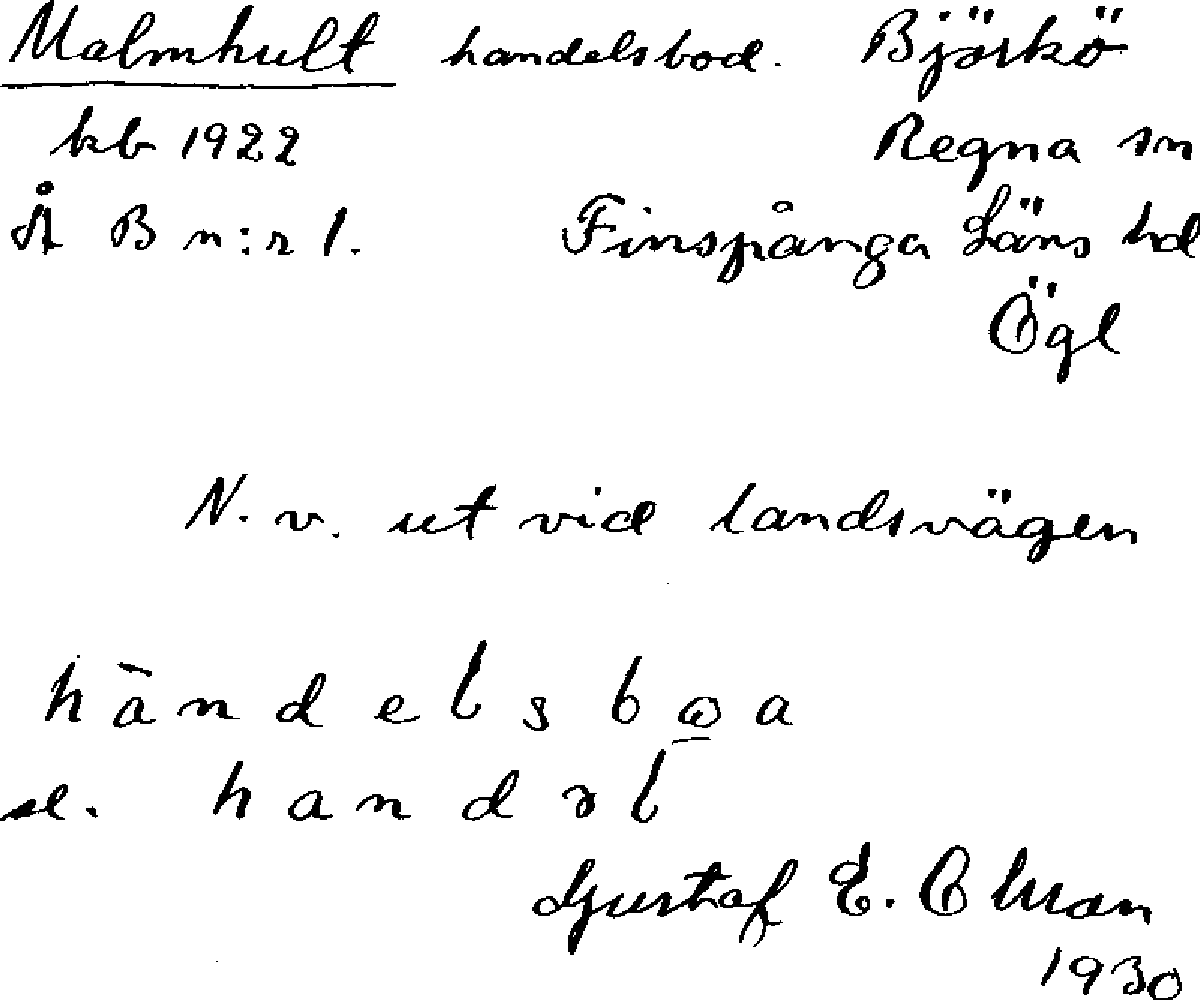 Malmhult handelsbod. Björkö
kb 1922 Regna sn
Å B n:r 1. Finspånga Läns hd
Ögl
N. v. ut vid landsvägen
hàndelsbωa
el. handəl
Gustaf E. Ohman
1930